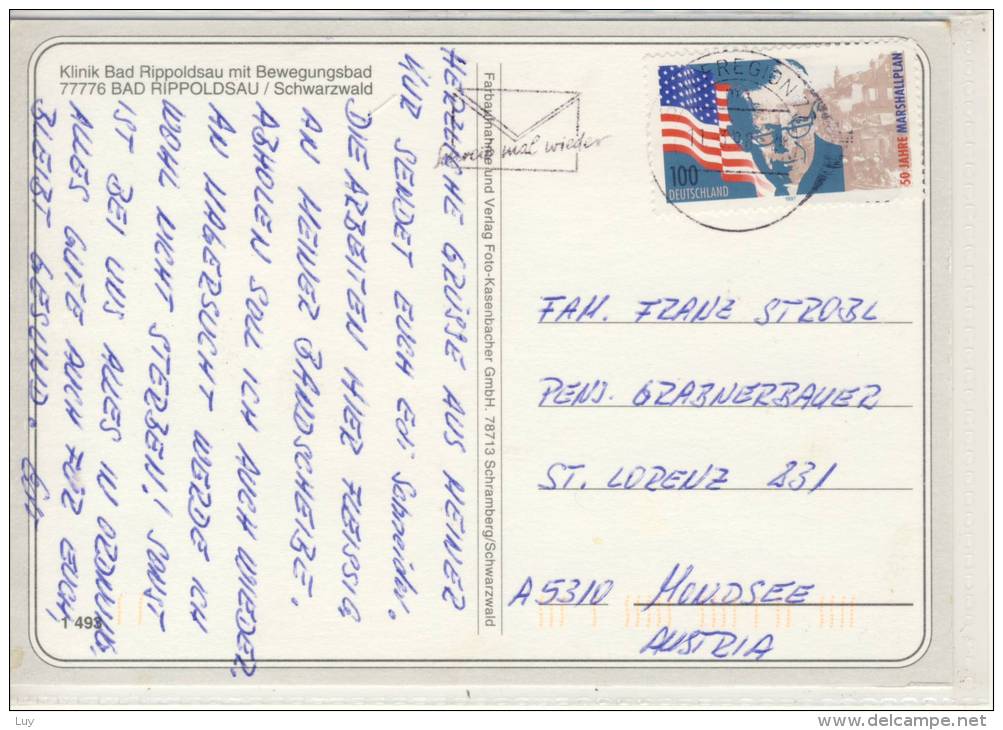 Klinik Bad Rippoldsau mit Bewegungsbad
77776 BAD RIPPOLDSAU / Schwarzwald
HERZLICHE GRÜSSE AUS MEINER
KUR SENDET EUCH Edi Schneidr.
DIE ARBEITEN HIER FLEISSIG
AN MEINER BANDSCHEIBE.
ABHOLEN SOLL ICH AUCH WIEDER.
AN MAGERSUCHT WERDE ICH
WOHL NICHT STERBEN! SONST
IST BEI UNS ALLES IN ORDNUNG.
ALLES GUTE AUCH FÜR EUCH,
BLEIBT GESUND. Edi
1 493
Farbaufnahme und Verlag Foto-Kasenbacher GmbH. 78713 Schramberg/Schwarzwald
mal wieder
EREGION 7
100
DEUTSCHLAND
1997
50 JAHRE MARSHALLPLAN
FAM. FRANZ STROBL
PENS. GRABNERBAUER
ST. LORENZ 231
A 5310 MONDSEE
AUSTRIA
Luy
www.delcampe.net